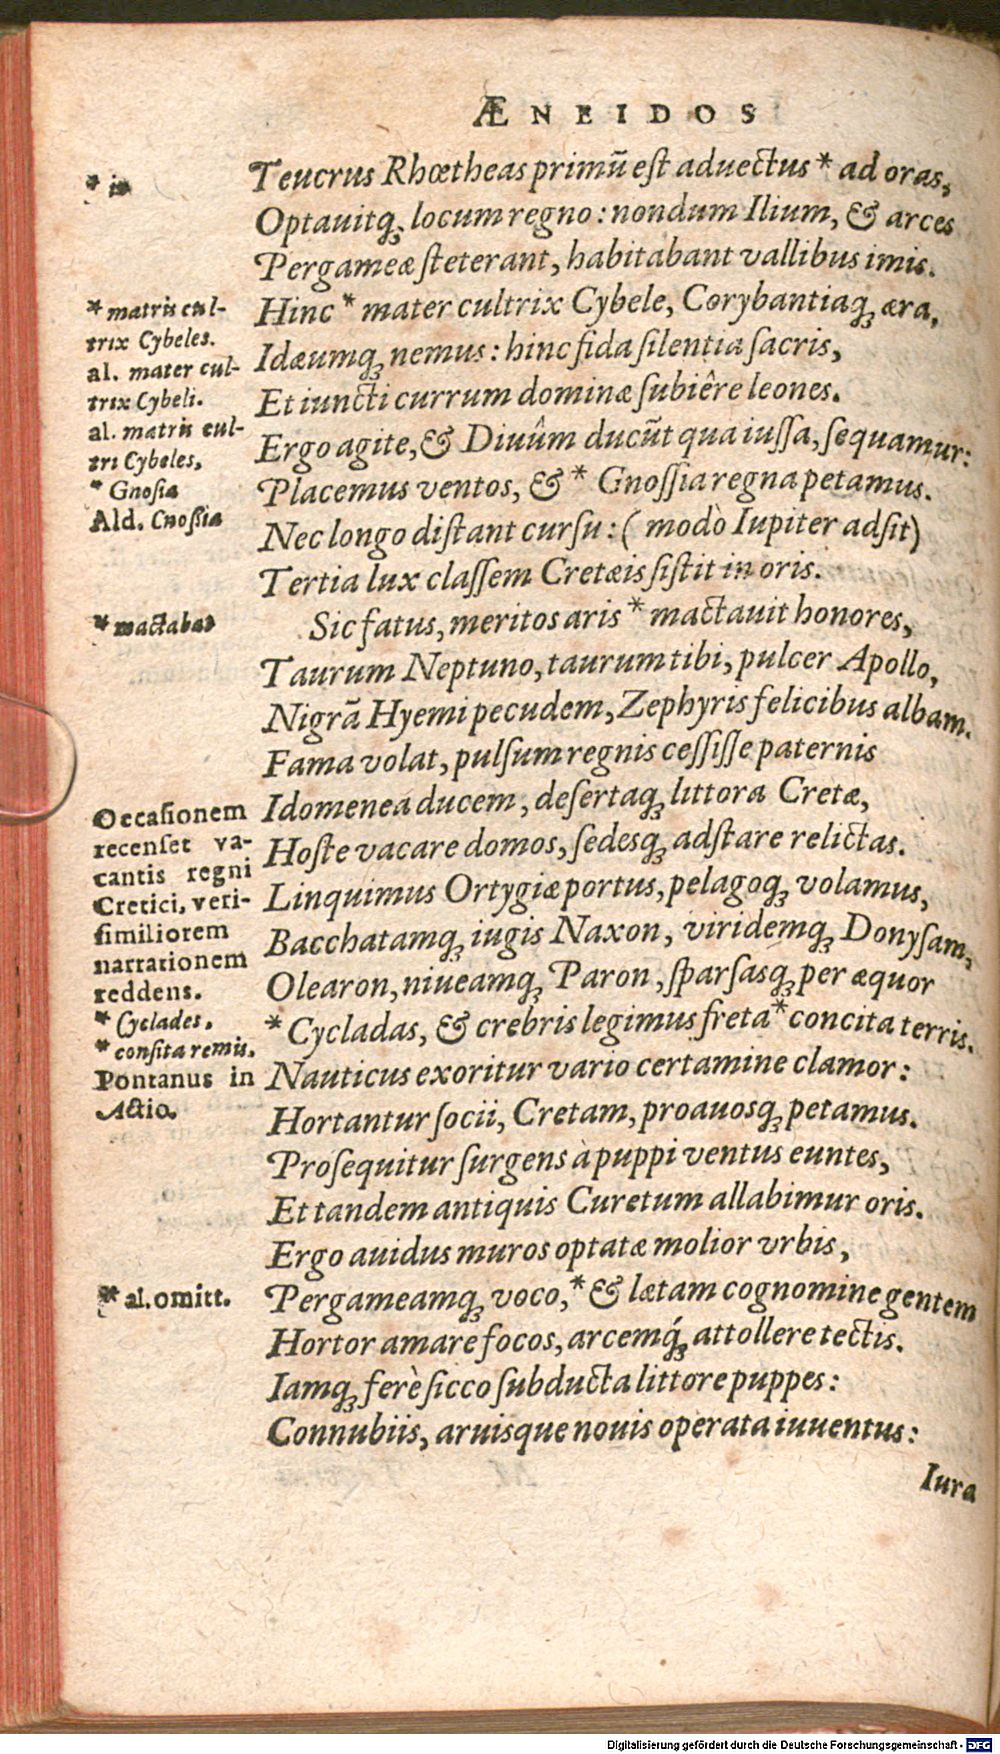 ÆNEIDOS
* in
Teucrus Rhœtheas primũ eſt aduectus * ad oras,
Optauitq́; locum regno: nondum Ilium, & arces
Pergameæ ſteterant, habitabant vallibus imis.
* matris cul-
trix Cybeles.
al. mater cul-
trix Cybeli.
al. matris cul-
tri Cybeles,
* Gnoſia
Ald. Cnoſſia
Hinc * mater cultrix Cybele, Corybantiaq; æra,
Idæumq; nemus: hinc fida ſilentia ſacris,
Et iuncti currum dominæ ſubiêre leones.
Ergo agite, & Diuûm ducũt qua iuſſa, ſequamur:
Placemus ventos, & * Gnoſſia regna petamus.
Nec longo diſtant curſu: ( modò Iupiter adſit)
Tertia lux claſſem Cretæis ſiſtit in oris.
* mactabat
Sic fatus, meritos aris * mactauit honores,
Taurum Neptuno, taurum tibi, pulcer Apollo,
Nigrã Hyemi pecudem, Zephyris felicibus albam.
Fama volat, pulſum regnis ceſſiſſe paternis
Occaſionem
recenſet va-
cantis regni
Cretici, veri-
ſimiliorem
narrationem
reddens.
* Cyclades.
* conſita remis.
Pontanus in
Actio.
Idomenea ducem, deſertaq; littora Cretæ,
Hoſte vacare domos, ſedesq; adſtare relictas.
Linquimus Ortygiæ portus, pelagoq; volamus,
Bacchatamq; iugis Naxon, viridemq; Donyſam,
Olearon, niueamq; Paron, ſparſasq; per æquor
* Cycladas, & crebris legimus freta * concita terris.
Nauticus exoritur vario certamine clamor:
Hortantur ſocii, Cretam, proauosq; petamus.
Proſequitur ſurgens à puppi ventus euntes,
Et tandem antiquis Curetum allabimur oris.
Ergo auidus muros optatæ molior vrbis,
* al. omitt.
Pergameamq; voco, * & lætam cognomine gentem
Hortor amare focos, arcemq́; attollere tectis.
Iamq; ferè ſicco ſubducta littore puppes:
Connubiis, aruisque nouis operata iuuentus:
Iura
Digitalisierung gefördert durch die Deutsche Forschungsgemeinschaft - DFG